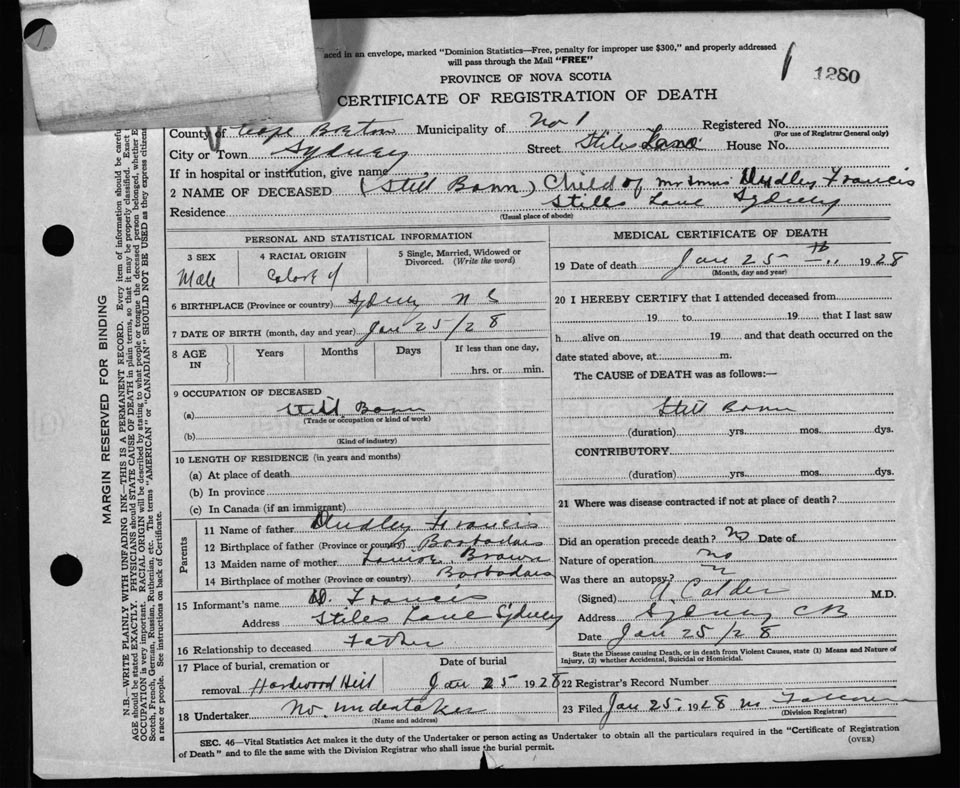 aced in an envelope, marked "Dominion Statistics—Free, penalty for improper use $300," and properly addressed
will pass through the Mail "FREE"
1280
PROVINCE OF NOVA SCOTIA
CERTIFICATE OF REGISTRATION OF DEATH
County of Cape Breton Municipality of No 1 Registered No.
(For use of Registrar General only)
City or Town Sydney Street Stiles Lane House No.
If in hospital or institution, give name
2 NAME OF DECEASED (Still Born) Child of Mr & Mrs Dudley Francis
Residence Stiles Lane Sydney
(Usual place of abode)
PERSONAL AND STATISTICAL INFORMATION
3 SEX
Male
4 RACIAL ORIGIN
Colored
5 Single, Married, Widowed or Divorced. (Write the word)
6 BIRTHPLACE (Province or country) Sydney N S
7 DATE OF BIRTH (month, day and year) Jan 25/28
8 AGE IN Years Months Days If less than one day,
hrs. or min.
9 OCCUPATION OF DECEASED
(a) Still Born
(Trade or occupation or kind of work)
(b)
(Kind of industry)
10 LENGTH OF RESIDENCE (in years and months)
(a) At place of death
(b) In province
(c) In Canada (if an immigrant)
Parents
11 Name of father Dudley Francis
12 Birthplace of father (Province or country) Barbados
13 Maiden name of mother Brown
14 Birthplace of mother (Province or country) Barbados
15 Informant's name D. Francis
Address Stiles Lane Sydney
16 Relationship to deceased Father
17 Place of burial, cremation or removal Hardwood Hill
Date of burial
Jan 25 1928
18 Undertaker No undertaker
(Name and address)
MEDICAL CERTIFICATE OF DEATH
19 Date of death Jan 25th 1928
(Month, day and year)
20 I HEREBY CERTIFY that I attended deceased from
19 to 19 that I last saw
h alive on 19 and that death occurred on the
date stated above, at m.
The CAUSE of DEATH was as follows:—
Still Born
(duration) yrs. mos. dys.
CONTRIBUTORY
(duration) yrs. mos. dys.
21 Where was disease contracted if not at place of death?
Did an operation precede death? No Date of
Nature of operation no
Was there an autopsy?
(Signed) A. Calder M.D.
Address Sydney CB
Date Jan 25/28
State the Disease causing Death, or in death from Violent Causes, state (1) Means and Nature of
Injury, (2) whether Accidental, Suicidal or Homicidal.
22 Registrar's Record Number
23 Filed Jan 25 1928
(Division Registrar)
SEC. 46—Vital Statistics Act makes it the duty of the Undertaker or person acting as Undertaker to obtain all the particulars required in the "Certificate of Registration
of Death" and to file the same with the Division Registrar who shall issue the burial permit.
(OVER)
MARGIN RESERVED FOR BINDING
N.B.—WRITE PLAINLY WITH UNFADING INK—THIS IS A PERMANENT RECORD. Every item of information should be carefu
AGE should be stated EXACTLY. PHYSICIANS should STATE CAUSE OF DEATH in plain terms, so that it may be properly classified. Exact
OCCUPATION is very important. RACIAL ORIGIN will be described by stating to what people or tongue the deceased person belonged, whether E
Scotch, French, German, Russian, Ruthenian, etc. The terms "AMERICAN" or "CANADIAN" SHOULD NOT BE USED as they express citizens
a race or people. See instructions on back of Certificate.